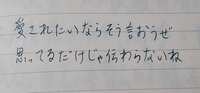 愛されたいならそう言おうぜ
思ってるだけじゃ伝わらないね